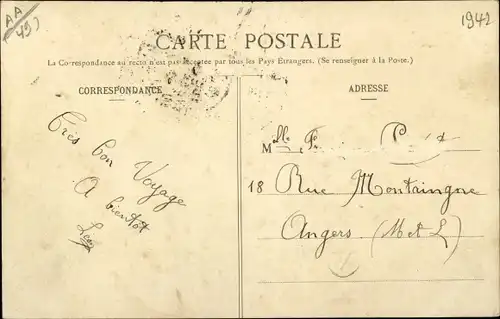 AA
49)
1942
CARTE POSTALE
La Correspondance au recto n'est pas acceptée par tous les Pays Étrangers. (Se renseigner à la Poste.)
CORRESPONDANCE
Très bon Voyage
A bientôt
ADRESSE
Melle
18 Rue Montaingne
Angers (M et L)